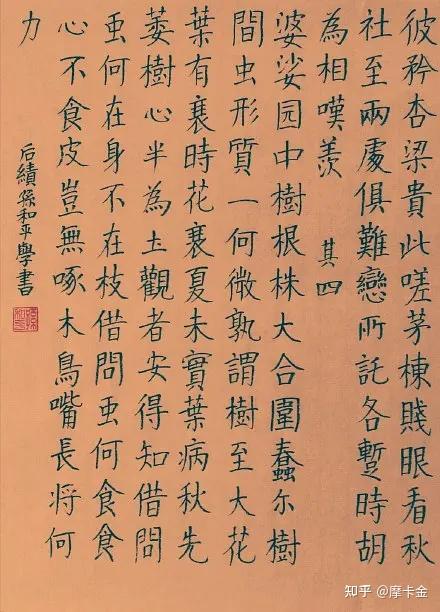 彼矜杏梁貴此嗟茅棟賤眼看秋
社至兩處俱難戀所託各暫時胡
為相嘆羨 其四
婆娑园中樹根株大合圍蠢尓樹
間虫形質一何微孰謂樹至大花
葉有衰時花衰夏未實葉病秋先
萎樹心半為土觀者安得知借問
䖝何在身不在枝借問䖝何食食
心不食皮豈無啄木鳥嘴長将何
力
后績孫和平學書
知乎 @摩卡金